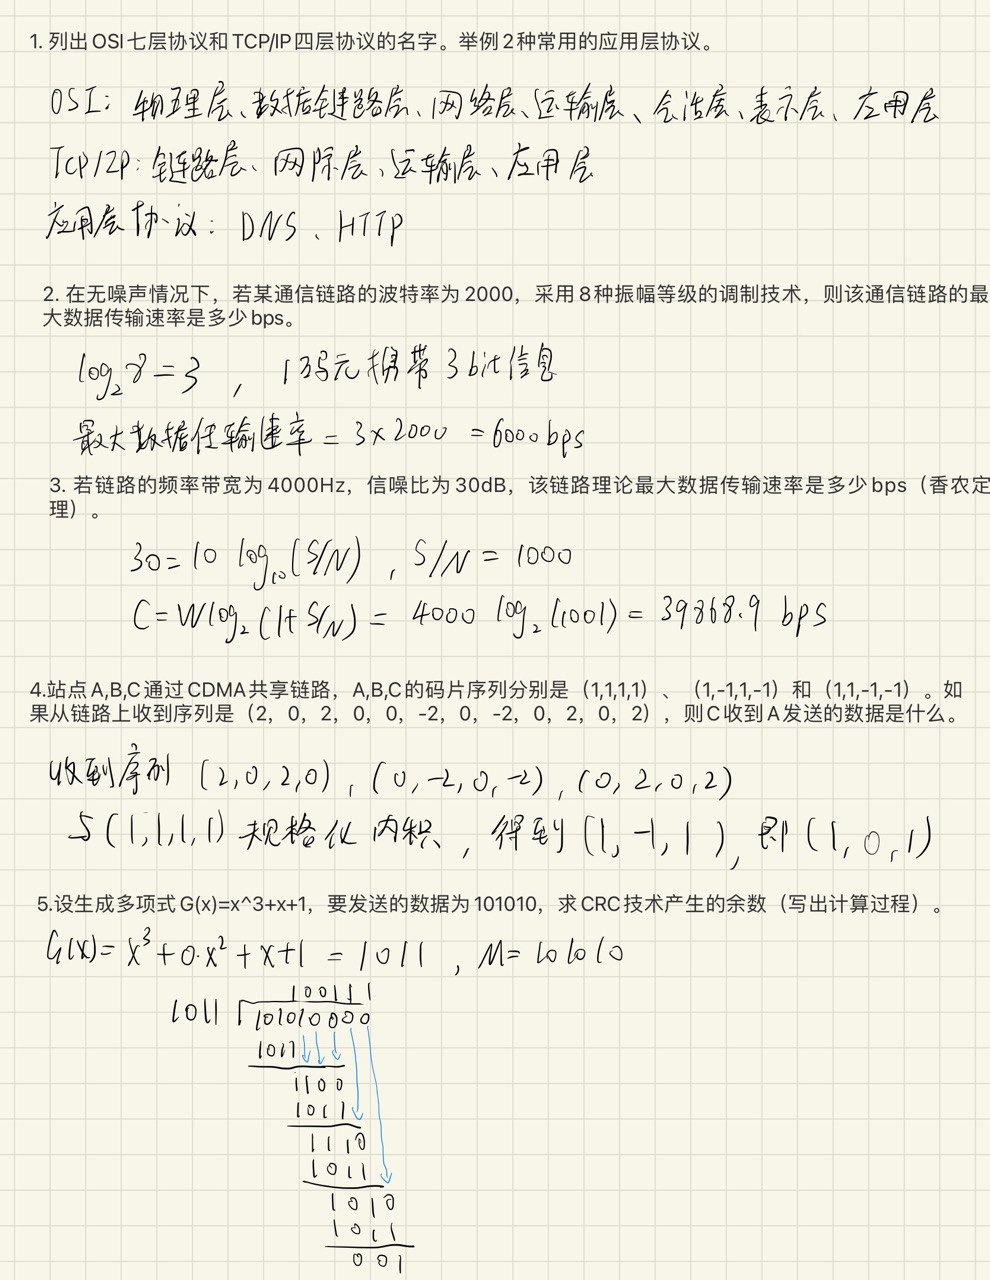 1. 列出OSI七层协议和TCP/IP四层协议的名字。举例2种常用的应用层协议。
OSI: 物理层、数据链路层、网络层、运输层、会话层、表示层、应用层
TCP/IP: 链路层、网际层、运输层、应用层
应用层协议: DNS、HTTP
2. 在无噪声情况下，若某通信链路的波特率为2000，采用8种振幅等级的调制技术，则该通信链路的最
大数据传输速率是多少bps。
log₂8=3 , 1码元携带3bit信息
最大数据传输速率=3×2000=6000bps
3. 若链路的频率带宽为4000Hz，信噪比为30dB，该链路理论最大数据传输速率是多少bps（香农定
理）。
30=10 log₁₀(S/N) , S/N=1000
C=Wlog₂(1+S/N)= 4000 log₂(1001)=39868.9 bps
4.站点A,B,C通过CDMA共享链路，A,B,C的码片序列分别是（1,1,1,1）、（1,-1,1,-1）和（1,1,-1,-1）。如
果从链路上收到序列是（2，0，2，0，0，-2，0，-2，0，2，0，2）,则C收到A发送的数据是什么。
收到序列 (2,0,2,0) , (0,-2,0,-2) , (0,2,0,2)
与(1,1,1,1)规格化内积，得到(1,-1,1), 即(1,0,1)
5.设生成多项式G(x)=x^3+x+1，要发送的数据为101010，求CRC技术产生的余数（写出计算过程）。
G(X)= X³+0·X²+X+1 = 1011 , M=101010
100111
1011 101010000
1011
1100
1011
1110
1011
1010
1011
001